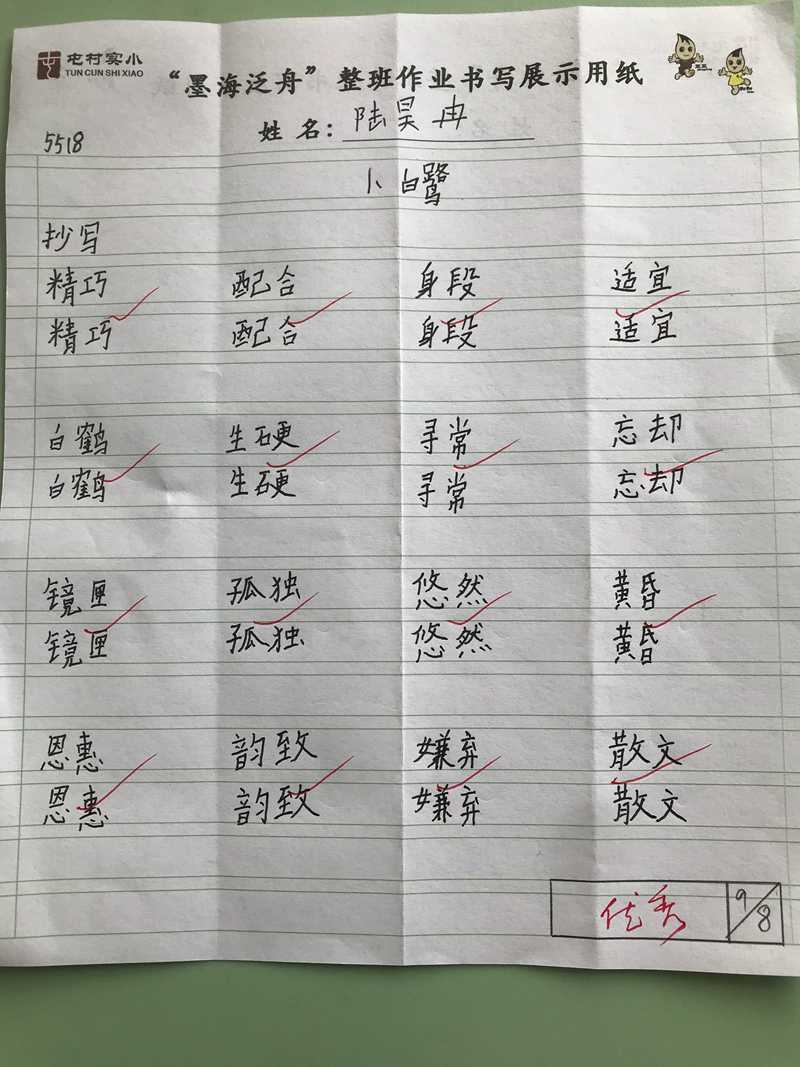 屯村实小
TUN CUN SHI XIAO
“墨海泛舟”整班作业书写展示用纸
姓名：陆昊冉
5518
1、白鹭
抄写
精巧 配合 身段 适宜
精巧 配合 身段 适宜
白鹤 生硬 寻常 忘却
白鹤 生硬 寻常 忘却
镜匣 孤独 悠然 黄昏
镜匣 孤独 悠然 黄昏
恩惠 韵致 嫌弃 散文
恩惠 韵致 嫌弃 散文
优秀 9/8